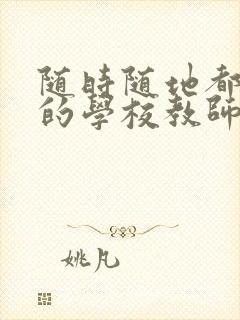 随時随地都
的學校教師
姚凡